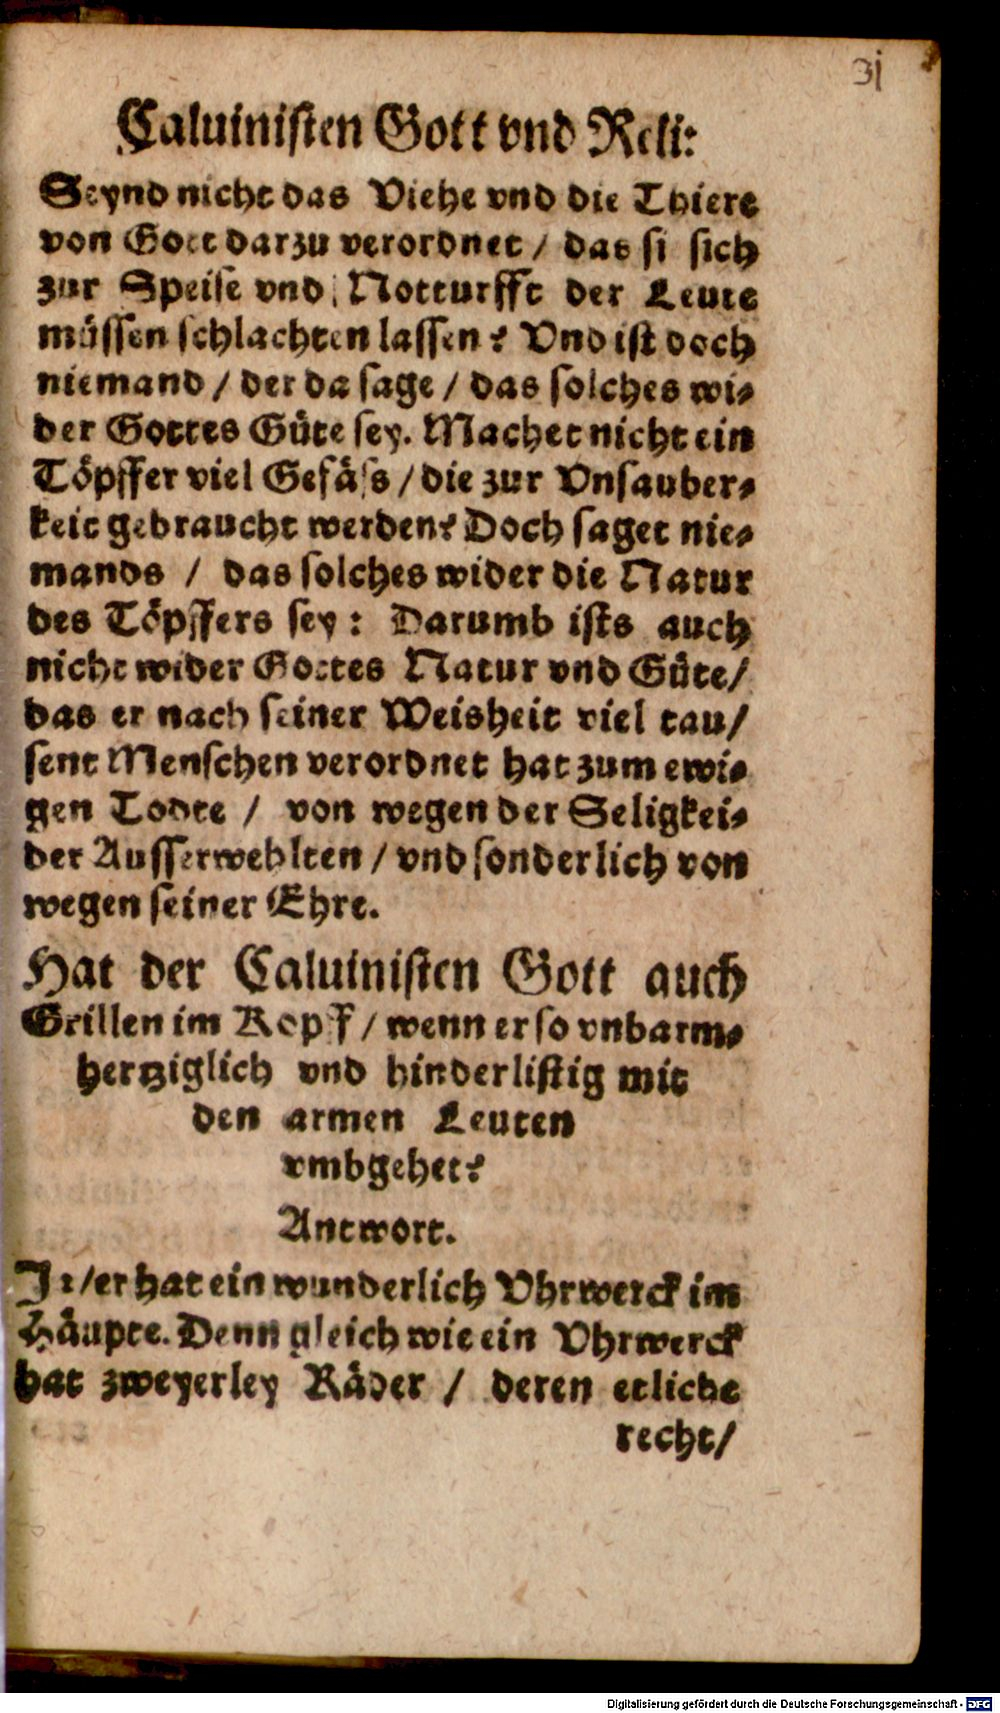 31
Caluinisten Gott vnd Reli:
Seynd nicht das Viehe vnd die Thiere
von Gott darzu verordnet / das si sich
zur Speise vnd Notturfft der Leute
müssen schlachten lassen? Vnd ist doch
niemand / der da sage / das solches wi-
der Gottes Güte sey. Machet nicht ein
Töpffer viel Gefäss / die zur Vnsauber-
keit gebraucht werden? Doch saget nie-
mands / das solches wider die Natur
des Töpffers sey: Darumb ists auch
nicht wider Gottes Natur vnd Güte/
das er nach seiner Weisheit viel tau/
sent Menschen verordnet hat zum ewi-
gen Todte / von wegen der Seligkei-
der Ausserwehlten / vnd sonderlich von
wegen seiner Ehre.
Hat der Caluinisten Gott auch
Grillen im Kopff / wenn er so vnbarm-
hertziglich vnd hinderlistig mit
den armen Leuten
vmbgehet?
Antwort.
Ja/er hat ein wunderlich Vhrwerck im
Häupte. Denn gleich wie ein Vhrwerck
hat zweyerley Räder / deren etliche
recht/
Digitalisierung gefördert durch die Deutsche Forschungsgemeinschaft - DFG